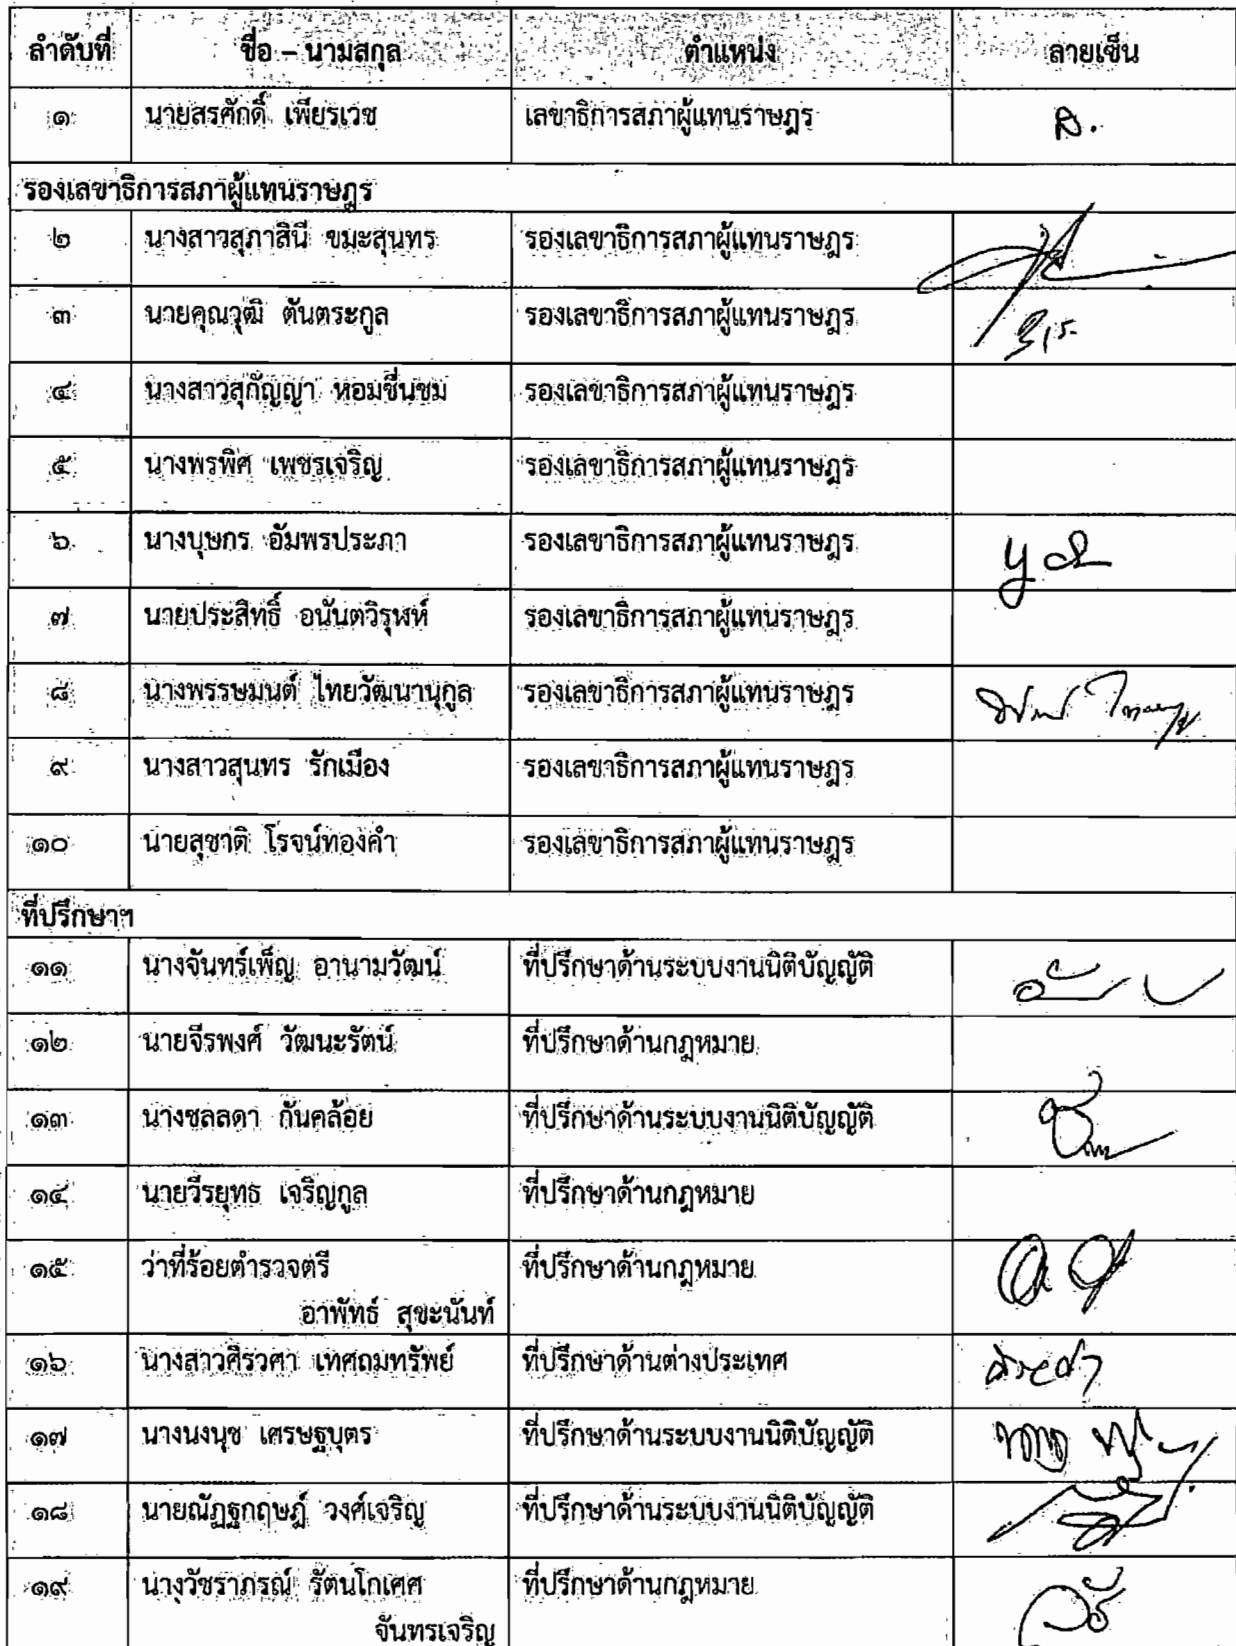 ลำดับที่ ชื่อ – นามสกุล ตำแหน่ง ลายเซ็น
๑ นายสรศักดิ์ เพียรเวช เลขาธิการสภาผู้แทนราษฎร
รองเลขาธิการสภาผู้แทนราษฎร
๒ นางสาวสุภาสินี ขมะสุนทร รองเลขาธิการสภาผู้แทนราษฎร
๓ นายคุณวุฒิ ตันตระกูล รองเลขาธิการสภาผู้แทนราษฎร
๔ นางสาวสุกัญญา หอมชื่นชม รองเลขาธิการสภาผู้แทนราษฎร
๕ นางพรพิศ เพชรเจริญ รองเลขาธิการสภาผู้แทนราษฎร
๖ นางบุษกร อัมพรประภา รองเลขาธิการสภาผู้แทนราษฎร
๗ นายประสิทธิ์ อนันตวิรุฬห์ รองเลขาธิการสภาผู้แทนราษฎร
๘ นางพรรษมนต์ ไทยวัฒนานุกูล รองเลขาธิการสภาผู้แทนราษฎร
๙ นางสาวสุนทร รักเมือง รองเลขาธิการสภาผู้แทนราษฎร
๑๐ นายสุชาติ โรจน์ทองคำ รองเลขาธิการสภาผู้แทนราษฎร
ที่ปรึกษาฯ
๑๑ นางจันทร์เพ็ญ อานามวัฒน์ ที่ปรึกษาด้านระบบงานนิติบัญญัติ
๑๒ นายจีรพงศ์ วัฒนะรัตน์ ที่ปรึกษาด้านกฎหมาย
๑๓ นางชลลดา กันคล้อย ที่ปรึกษาด้านระบบงานนิติบัญญัติ
๑๔ นายวีรยุทธ เจริญกูล ที่ปรึกษาด้านกฎหมาย
๑๕ ว่าที่ร้อยตำรวจตรี ที่ปรึกษาด้านกฎหมาย
อาพัทธ์ สุขะนันท์
๑๖ นางสาวศิรวศา เทศถมทรัพย์ ที่ปรึกษาด้านต่างประเทศ
๑๗ นางนงนุช เศรษฐบุตร ที่ปรึกษาด้านระบบงานนิติบัญญัติ
๑๘ นายณัฏฐกฤษฎ์ วงศ์เจริญ ที่ปรึกษาด้านระบบงานนิติบัญญัติ
๑๙ นางวัชราภรณ์ รัตนโกเศศ ที่ปรึกษาด้านกฎหมาย
จันทรเจริญ